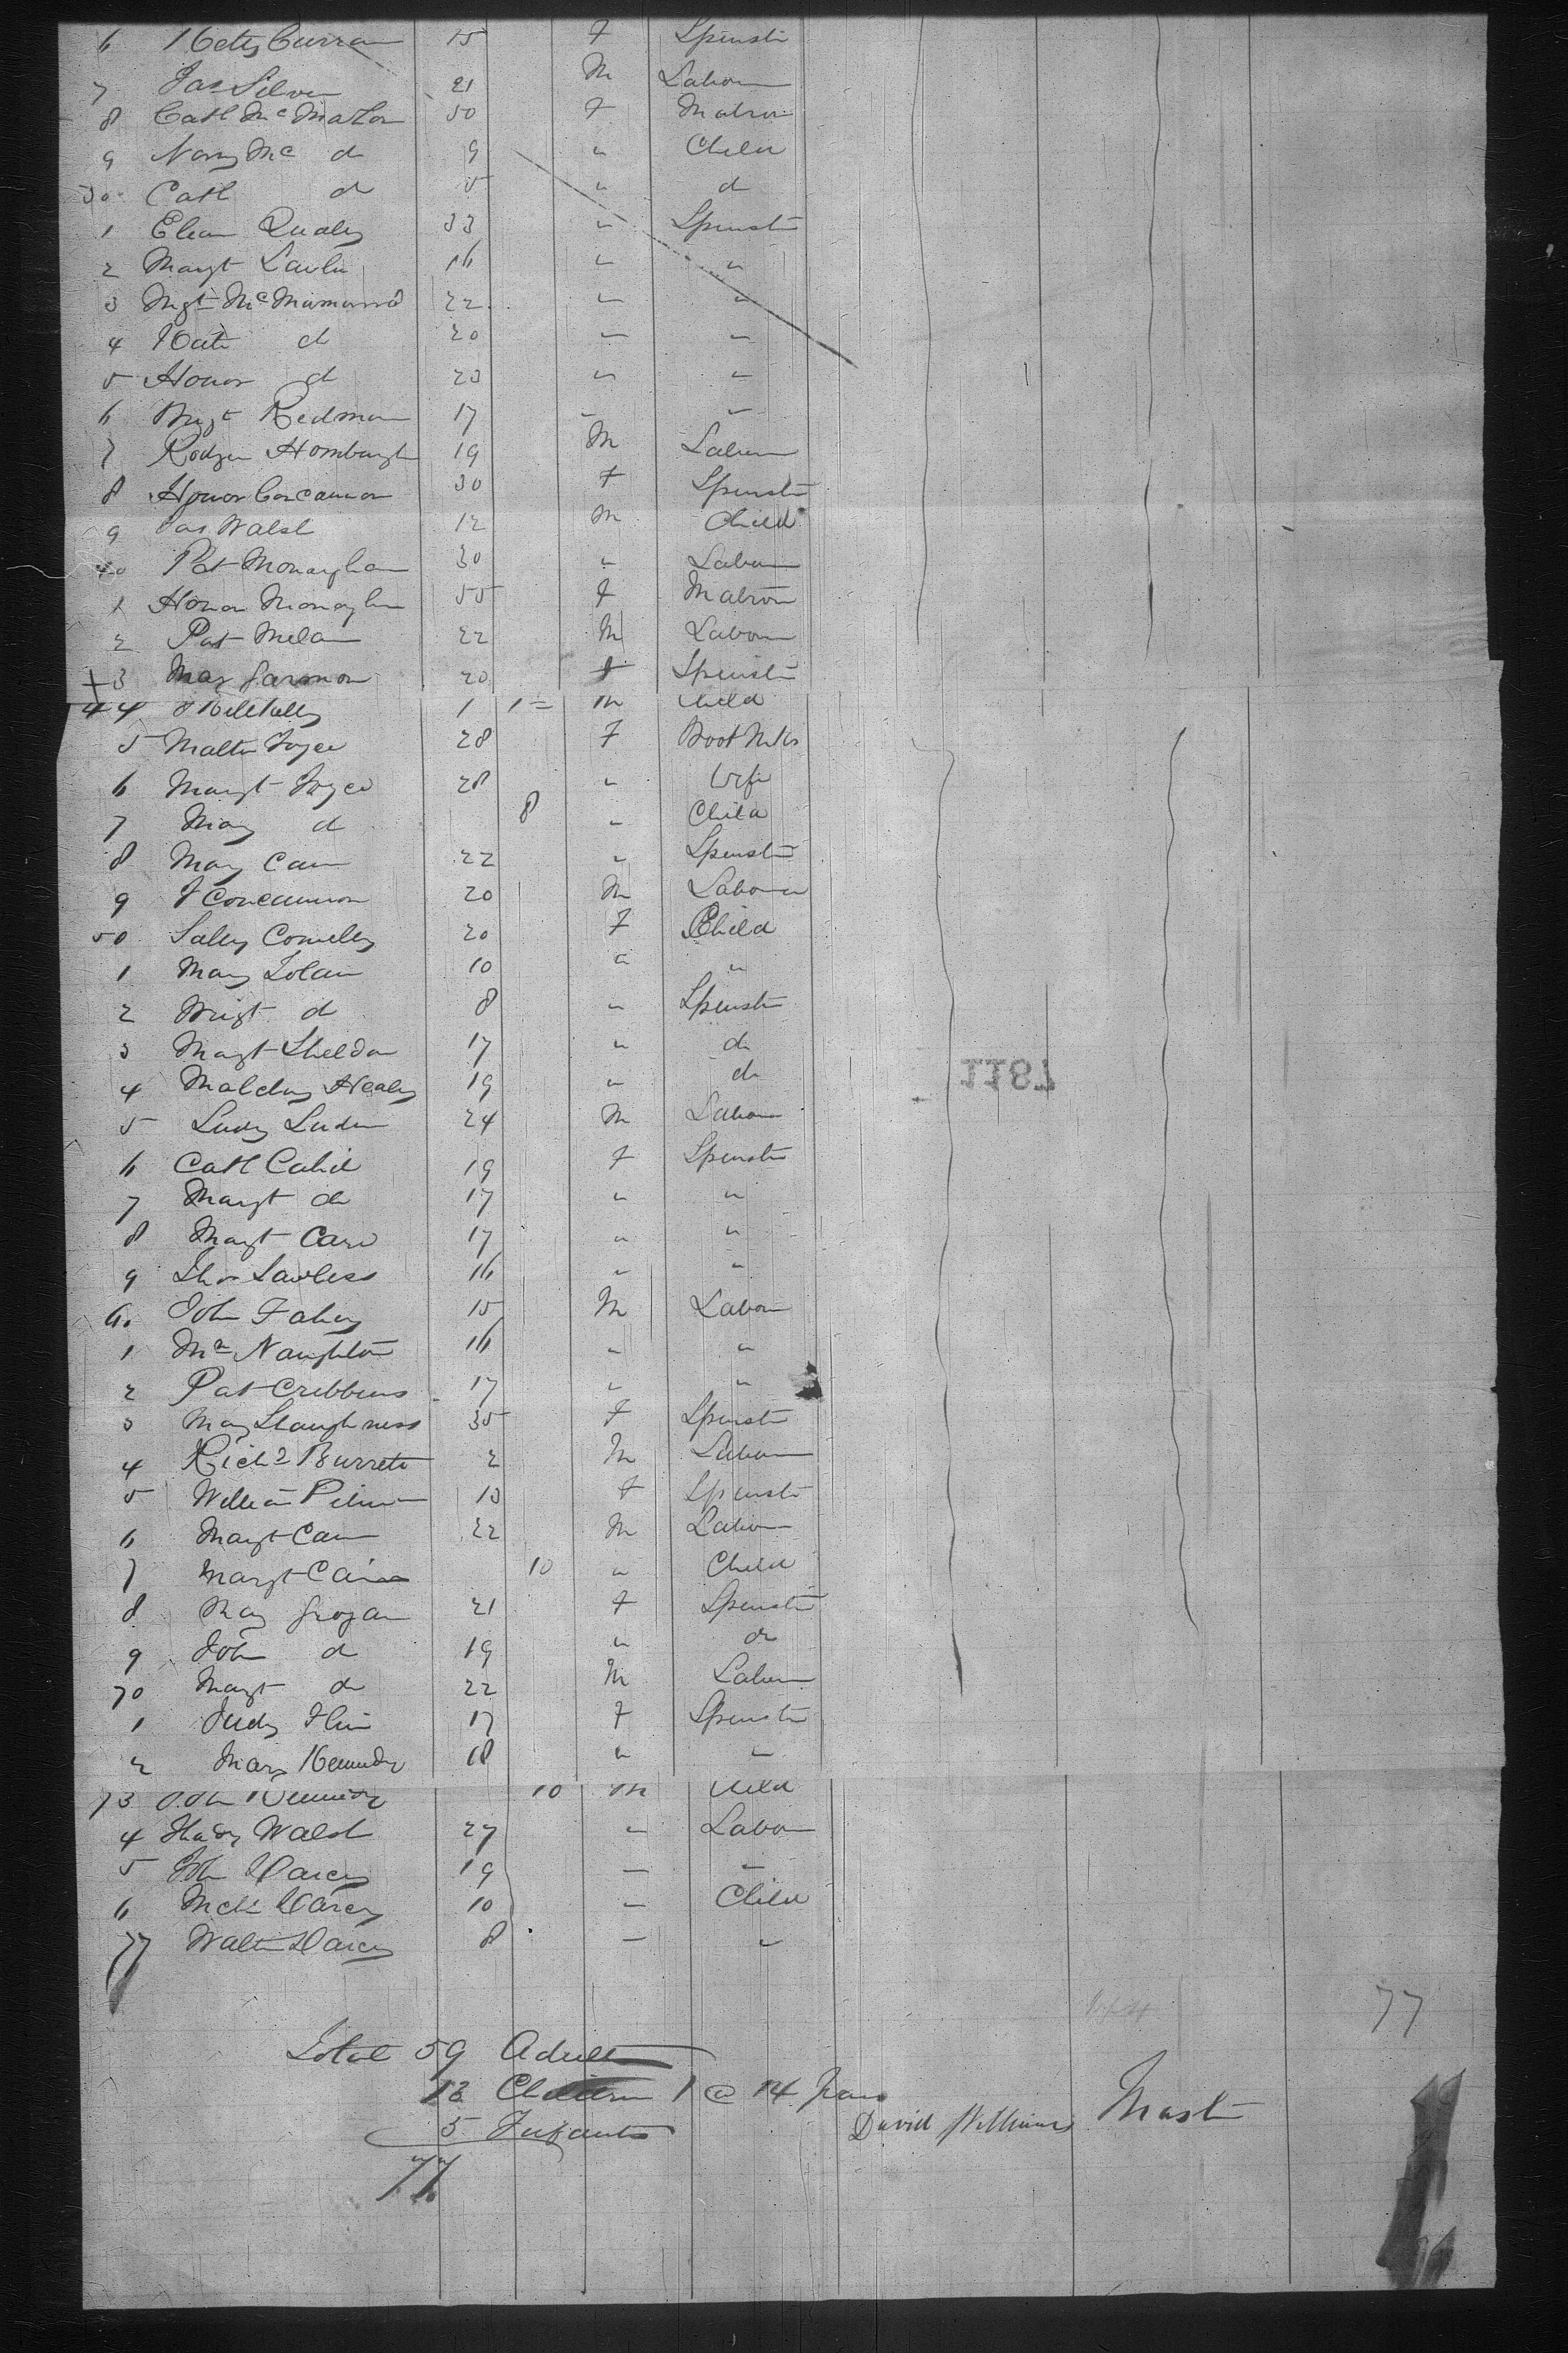 6 Kitty Curran 15 F Spinstr
7 Jas Silver 21 M Labour
8 Cath McMahon 50 F Matron
9 Nancy Mc d 9 " Child
30 Cath d 5 " d
1 Elean Qualey 33 " Spinstr
2 Margt 16 " "
3 Mgt McMamara 22 " "
4 Kate d 20 " "
5 Honor d 23 " "
6 Brigt Redman 17 " "
7 Rodger 19 M Labour
8 Honor Concannon 30 F Spinstr
9 Jas Walsh 12 M Child
40 Pat Monaghan 30 " Labour
1 Honor Monaghan 55 F Matron
2 Pat 22 M Labour
3 Mary 20 F Spinstr
44 J Killkelly 1 M Child
5 Joyce 28 F Boot Mkr
6 Margt Joyce 28 " Wife
7 Mary d 8 " Child
8 Mary Cain 22 " Spinstr
9 J Concannon 20 M Labour
50 Salley Connelly 20 F Child
1 Mary 10 " "
2 Brigt d 8 " Spinstr
3 Margt Sheldon 17 " do
4 Healey 19 " do
5 24 M Labour
6 Cath Cahil 19 F Spinstr
7 Margt do 17 " "
8 Margt Care 17 " "
9 Thos Lawless 16 " "
60 John Fahey 15 M Labour
1 Naughton 16 " "
2 Pat Cribbins 17 " "
3 May Shaughness 35 F Spinstr
4 Richd Burrett 2 M Labour
5 William 13 F Spinstr
6 Margt Cain 22 M Labour
7 Margt Cain 10 " Child
8 May Grogan 21 F Spinstr
9 John d 19 " do
70 Margt do 22 M Labour
1 Judy Flin 17 F Spinstr
2 Mary Kennedy 18 " "
73 John Kennedy 10 M Child
4 Thady Walsh 27 " Labour
5 John Darcey 19 " "
6 Mck Darcey 10 " Child
77 Walter Darcey 8 " "
1187
77
Total 59 Adults
13 Children 1 @ 14 Years
5 Infants
David Williams Mastr
77